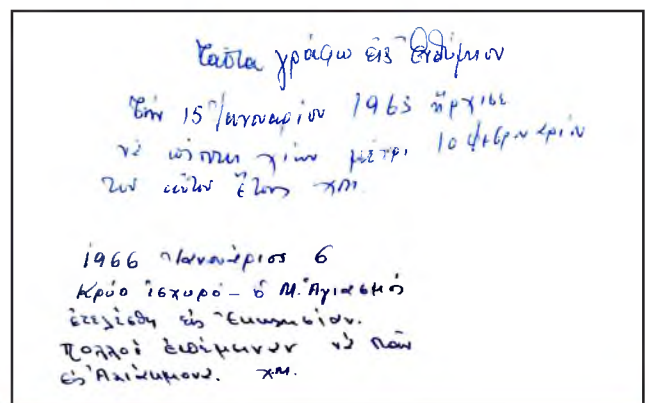 Ταῦτα γράφω εἰς Ἐνθύμιον
Τὴν 15 Ἰανουαρίου 1963 ἤρχισε
νὰ πίπτη χιών μέχρι 10 Φεβρουαρίου
τοῦ αὐτοῦ ἔτους χ.μ.
1966 Ἰανουάριος 6
Κρύο ἰσχυρό - ὁ Μ. Ἁγιασμός
ἐτελέσθη εἰς Ἐκκλησίαν.
Πολλοί ἐπέμενον νὰ πᾶν
εἰς Ἁλιάκμονα. χ.μ.